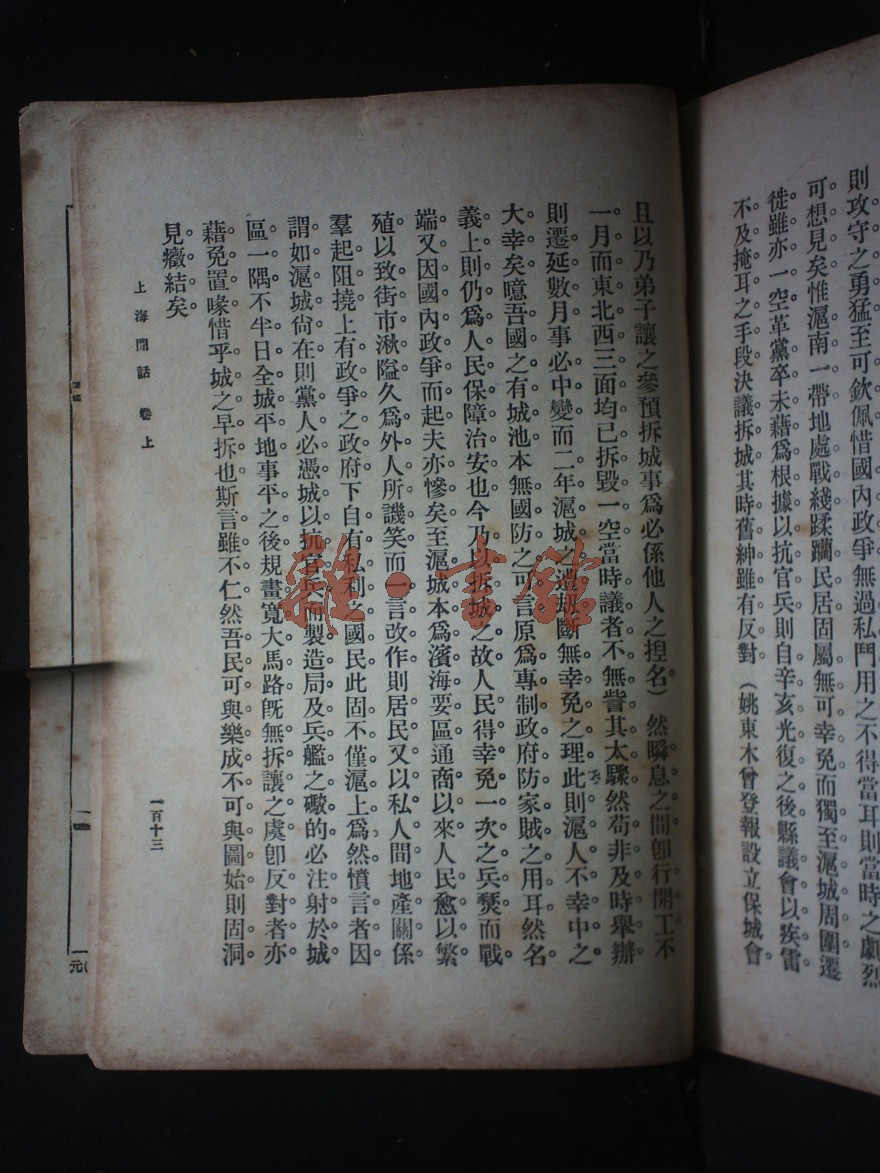 則攻守之勇猛至可欽佩惜國內政爭無過私鬥用之不得當耳則當時之劇烈
可想見矣惟滬南一帶地處戰綫蹂躪民居固屬無可幸免而獨至滬城周圍遷
徙雖亦一空革黨卒未藉爲根據以抗官兵則自辛亥光復之後縣議會以疾雷
不及掩耳之手段決議拆城其時舊紳雖有反對（姚東木曾登報設立保城會
且以乃弟子讓之參預拆城事爲必係他人之捏名）然瞬息之間卽行開工不
一月而東北西三面均已拆毀一空當時議者不無訾其太驟然苟非及時舉辦
則遷延數月事必中變而二年滬城之遭刼斷無幸免之理此則滬人不幸中之
大幸矣噫吾國之有城池本無國防之可言原爲專制政府防家賊之用耳然名
義上則仍爲人民保障治安也今乃以拆城之故人民得幸免一次之兵燹而戰
端又因國內政爭而起夫亦慘矣至滬城本爲濱海要區通商以來人民愈以繁
殖以致街市湫隘久爲外人所譏笑而一言改作則居民又以私人間地產關係
羣起阻撓上有政爭之政府下自有私利之國民此固不僅滬上爲然憤言者因
謂如滬城尙在則黨人必憑城以抗官兵而製造局及兵艦之礮的必注射於城
區一隅不半日全城平地事平之後規畫寬大馬路旣無拆讓之虞卽反對者亦
藉免置喙惜乎城之早拆也斯言雖不仁然吾民可與樂成不可與圖始則固洞
見癥結矣
上海閒話 卷上
一百十三
雜·書館
元